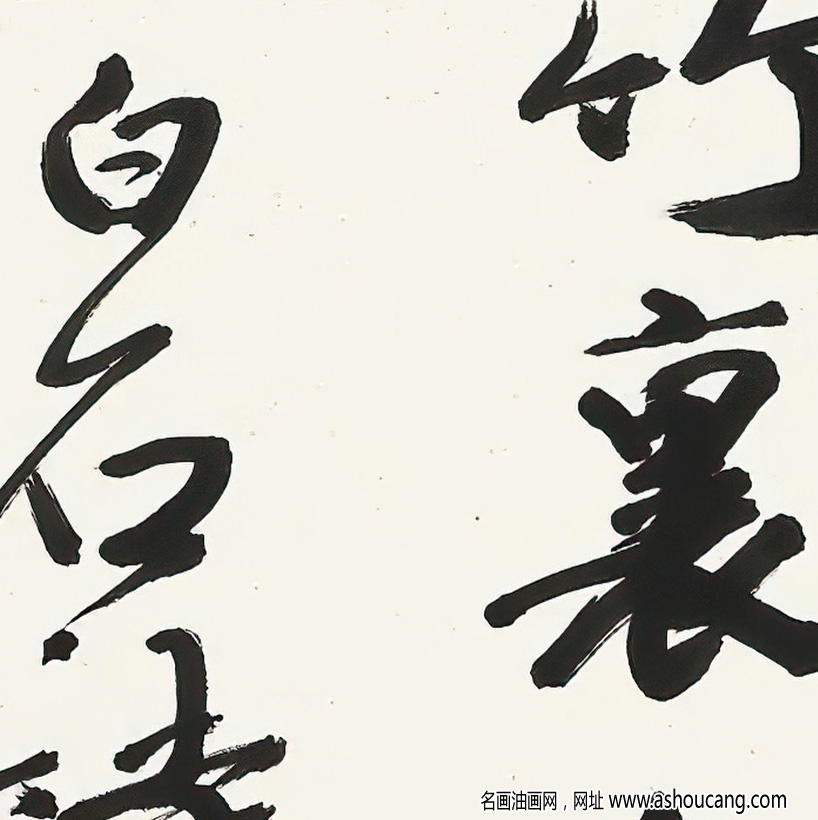 竹裏
白石
名画油画网，网址 www.ashoucang.com